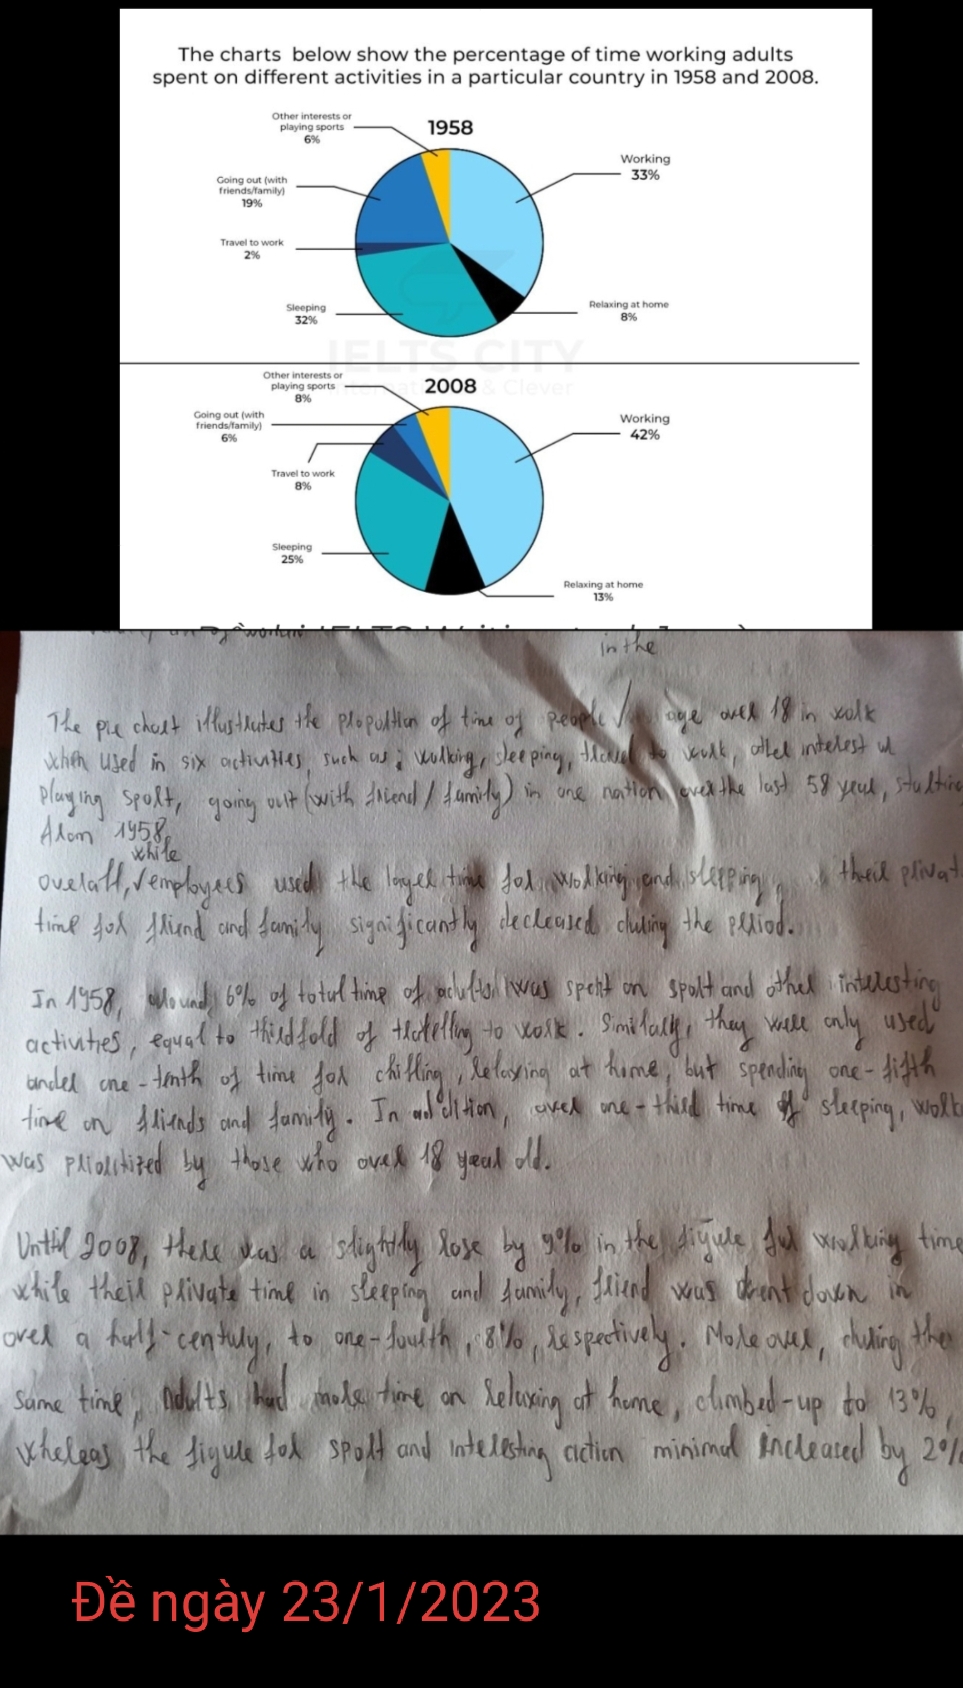 The charts below show the percentage of time working adults
spent on different activities in a particular country in 1958 and 2008.
1958
Other interests or
playing sports
6%
Working
33%
Going out (with
friends/family)
19%
Travel to work
2%
Sleeping
32%
Relaxing at home
8%
IELTS CITY
& Clever
2008
Other interests or
playing sports
8%
Going out (with
friends/family)
6%
Working
42%
Travel to work
8%
Sleeping
25%
Relaxing at home
13%
in the
The pie chart illustrates the proportion of time of people age over 18 in work
when used in six activities, such as; working, sleeping, travel to work, other interest or
playing sport, going out (with friend / family) in one nation over the last 58 year, starting
from 1958.
while
overall, employees used the larger time for working and sleeping, their privat
time for friend and family significantly decreased during the period.
In 1958, around 6% of total time of adults was spent on sport and other interesting
activities, equal to threefold of travelling to work. Similarly, they were only used
under one-tenth of time for chilling, relaxing at home, but spending one-fifth
time on friends and family. In addition, over one-third time of sleeping, work
was prioritized by those who over 18 year old.
Until 2008, there was a slightly rose by 9% in the figure for working time
while their private time in sleeping and family, friend was went down in
over a half-century, to one-fourth, 8%, respectively. More over, during the
same time, adults had more time on relaxing at home, climbed-up to 13%,
whereas the figure for sport and interesting action minimal increased by 2%
Đề ngày 23/1/2023